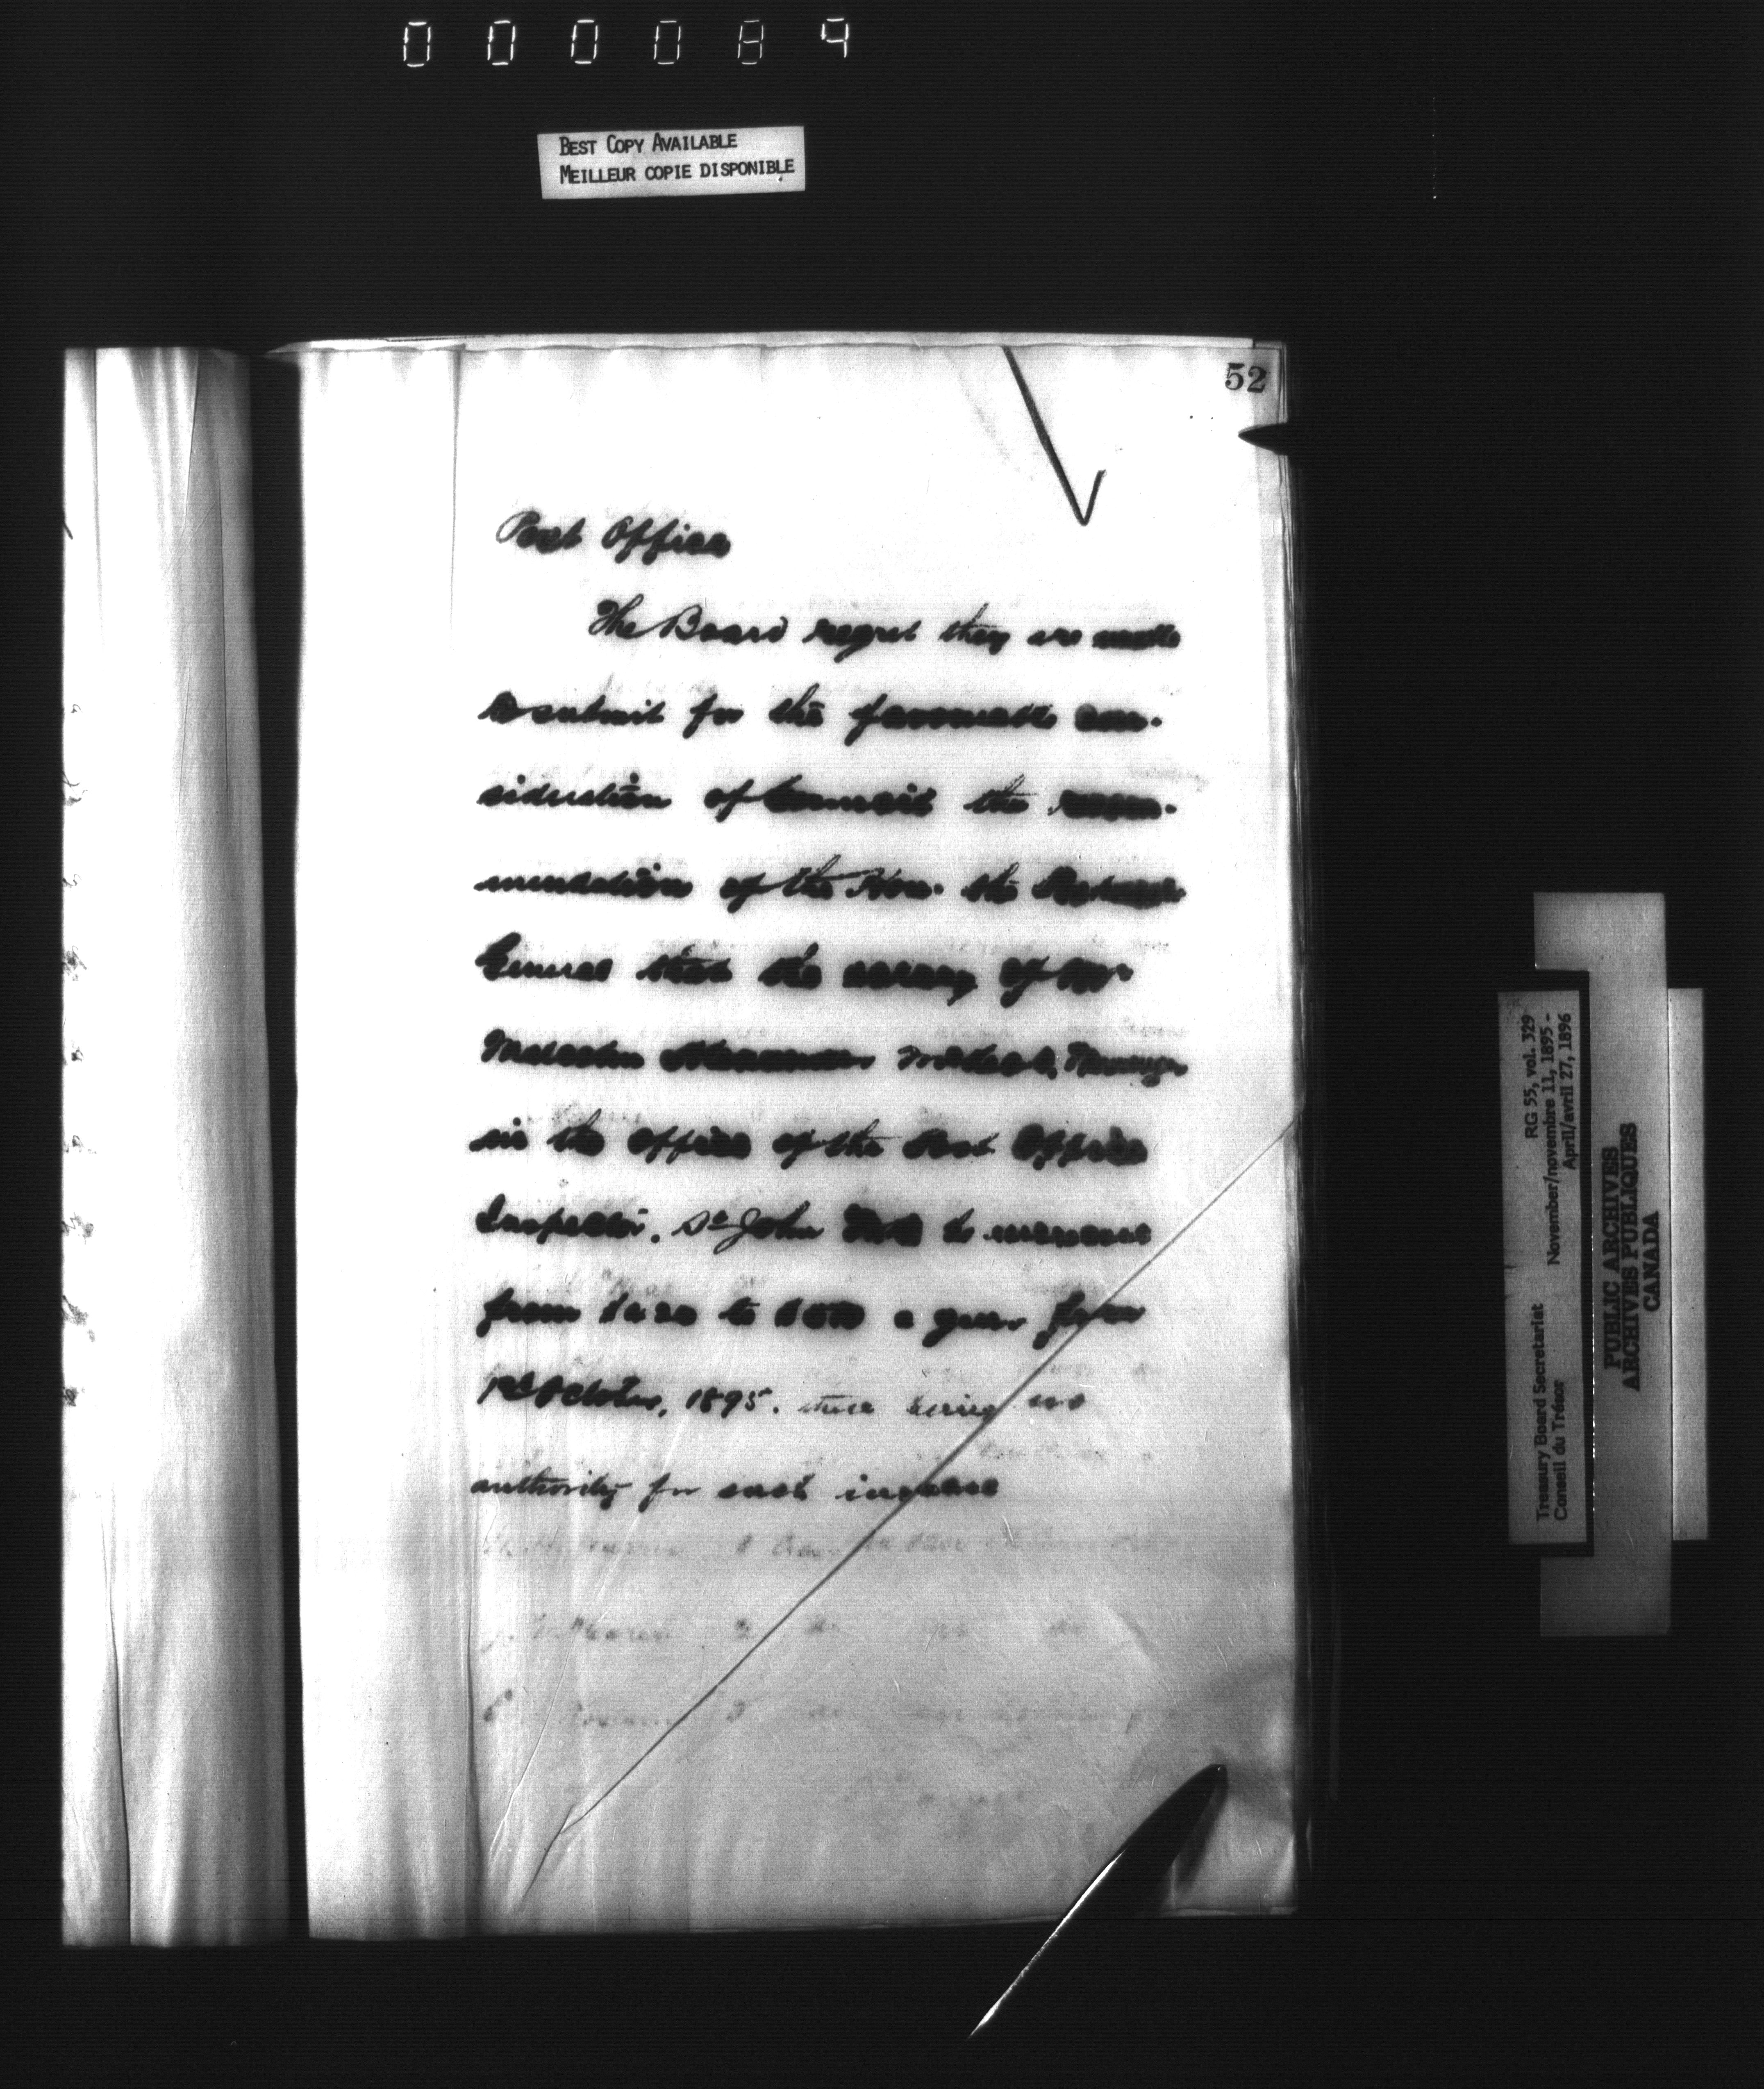 000089
BEST COPY AVAILABLE
MEILLEUR COPIE DISPONIBLE
52
Post Office
The Board regret they are unable
to submit for the favourable con-
sideration of Council the recom-
mendation of the Hon. the Postmaster
General that the salary of Mr
Malcolm McLeod, Messenger
in the office of the Post Office
Inspector, St John N.B. to increase
from to a year from
1st October, 1895. there being no
authority for such increase
Treasury Board Secretariat RG 55, vol. 329
Conseil du Trésor November/novembre 11, 1895 -
April/avril 27, 1896
PUBLIC ARCHIVES
ARCHIVES PUBLIQUES
CANADA